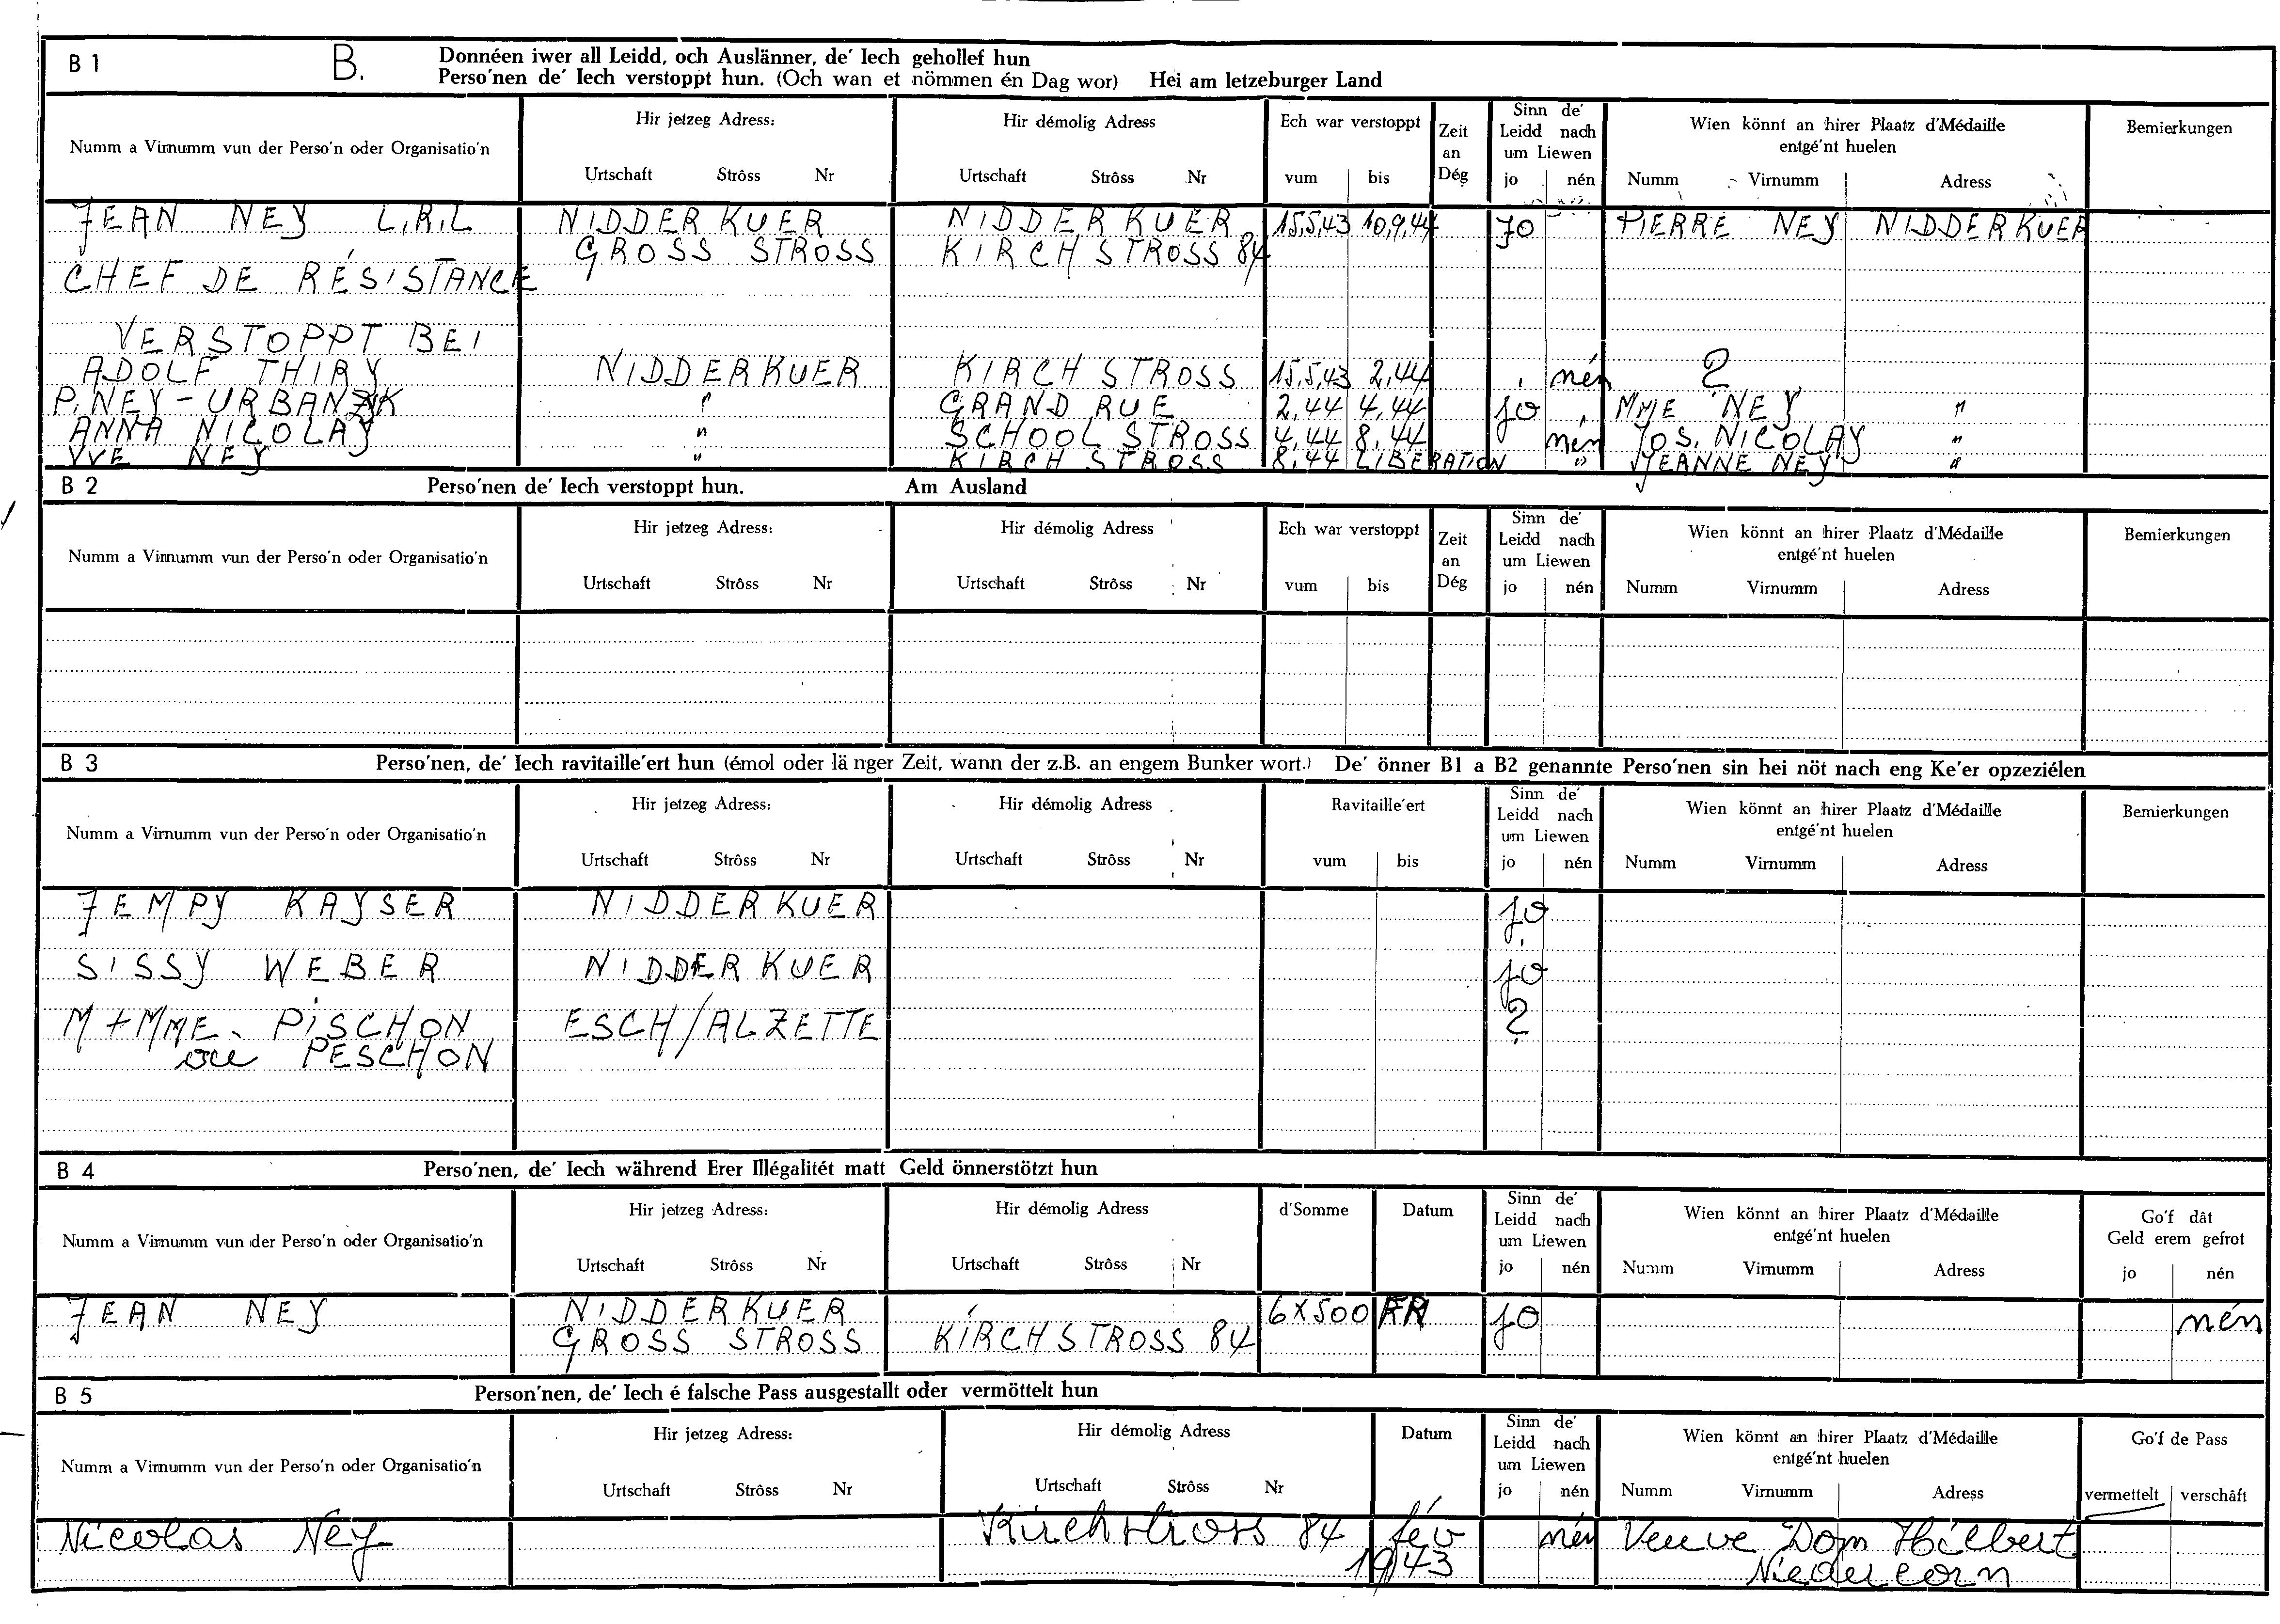 B 1 B. Donnéen iwer all Leidd, och Auslänner, de' Iech gehollef hun
Perso'nen de' Iech verstoppt hun. (Och wan et nömmen én Dag wor) Hei am letzeburger Land
Numm a Virnumm vun der Perso'n oder Organisatio'n
Hir jetzeg Adress:
Urtschaft Strôss Nr
Hir démolig Adress
Urtschaft Strôss Nr
Ech war verstoppt
vum bis
Zeit
an
Dég
Sinn de'
Leidd nach
um Liewen
jo nén
Wien könnt an hirer Plaatz d'Médaille
entgé'nt huelen
Numm Virnumm Adress
Bemierkungen
JEAN NEY L.R.L NIDDERKUER NIDDERKUER 15.5.43 10.9.44 JO PIERRE NEY NIDDERKUER
GROSS STROSS KIRCHSTROSS 84
CHEF DE RÉSISTANCE
VERSTOPPT BEI
ADOLF THIRY NIDDERKUER KIRCH STROSS 15.5.43 2.44 nén ?
P. NEY-URBANZIK " GRAND RUE 2.44 4.44 jo MME NEY "
ANNA NICOLAY " SCHOOL STROSS 4.44 8.44 nén JOS. NICOLAY "
VVE NEY " KIRCH STROSS 8.44 LIBERATION " JEANNE NEY "
B 2 Perso'nen de' Iech verstoppt hun. Am Ausland
Numm a Virnumm vun der Perso'n oder Organisatio'n
Hir jetzeg Adress:
Urtschaft Strôss Nr
Hir démolig Adress
Urtschaft Strôss Nr
Ech war verstoppt
vum bis
Zeit
an
Dég
Sinn de'
Leidd nach
um Liewen
jo nén
Wien könnt an hirer Plaatz d'Médaille
entgé'nt huelen
Numm Virnumm Adress
Bemierkungen
B 3 Perso'nen, de' Iech ravitaille'ert hun (émol oder länger Zeit, wann der z.B. an engem Bunker wort.) De' önner B1 a B2 genannte Perso'nen sin hei nöt nach eng Ke'er opzeziélen
Numm a Virnumm vun der Perso'n oder Organisatio'n
Hir jetzeg Adress:
Urtschaft Strôss Nr
Hir démolig Adress
Urtschaft Strôss Nr
Ravitaille'ert
vum bis
Sinn de'
Leidd nach
um Liewen
jo nén
Wien könnt an hirer Plaatz d'Médaille
entgé'nt huelen
Numm Virnumm Adress
Bemierkungen
JEMPY KAYSER NIDDERKUER jo
SISSY WEBER NIDDERKUER jo
M + MME. PISCHON ESCH/ALZETTE ?
ou PESCHON
B 4 Perso'nen, de' Iech während Erer Illégalitét matt Geld önnerstötzt hun
Numm a Virnumm vun der Perso'n oder Organisatio'n
Hir jetzeg Adress:
Urtschaft Strôss Nr
Hir démolig Adress
Urtschaft Strôss Nr
d'Somme
Datum
Sinn de'
Leidd nach
um Liewen
jo nén
Wien könnt an hirer Plaatz d'Médaille
entgé'nt huelen
Numm Virnumm Adress
Go'f dât
Geld erem gefrot
jo nén
JEAN NEY NIDDERKUER 6X500 FR jo nén
GROSS STROSS KIRCHSTROSS 84
B 5 Person'nen, de' Iech é falsche Pass ausgestallt oder vermöttelt hun
Numm a Virnumm vun der Perso'n oder Organisatio'n
Hir jetzeg Adress:
Urtschaft Strôss Nr
Hir démolig Adress
Urtschaft Strôss Nr
Datum
Sinn de'
Leidd nach
um Liewen
jo nén
Wien könnt an hirer Plaatz d'Médaille
entgé'nt huelen
Numm Virnumm Adress
Go'f de Pass
vermettelt verschâft
Nicolas Ney Kirchstross 84 fév nén Veuve Dom Hilbert
1943 Niedercorn